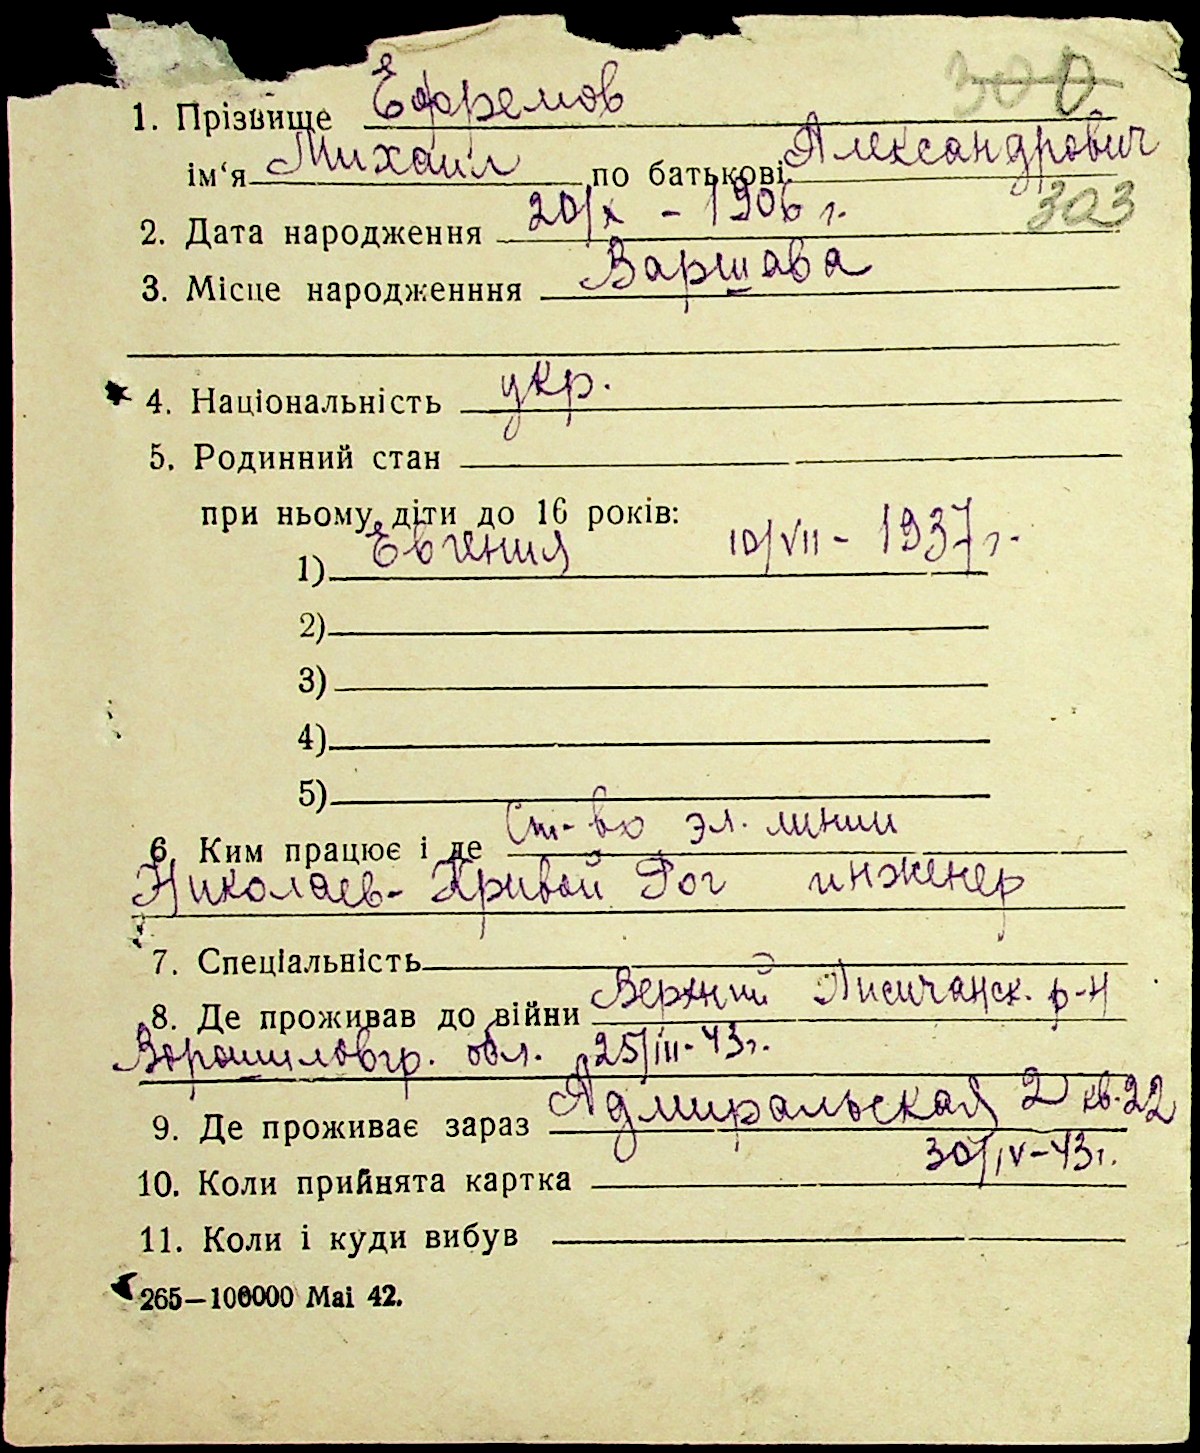 300
1. Прізвище Ефремов
ім‘я Михаил по батькові Александрович
303
2. Дата народження 20/X - 1906 г.
3. Місце народженння Варшава
4. Національність укр.
5. Родинний стан
при ньому діти до 16 років:
1) Евгения 10/VII - 1937 г.
2)
3)
4)
5)
6. Ким працює і де Ст-во эл. линии
Николаев- Кривой Рог инженер
7. Спеціальність
8. Де проживав до війни Верхний Лисичанск. р-н
Ворошиловгр. обл. 25/III-43г.
9. Де проживає зараз Адмиральская 2 кв. 22
10. Коли прийнята картка 30/IV-43г.
11. Коли і куди вибув
265—100000 Маі 42.